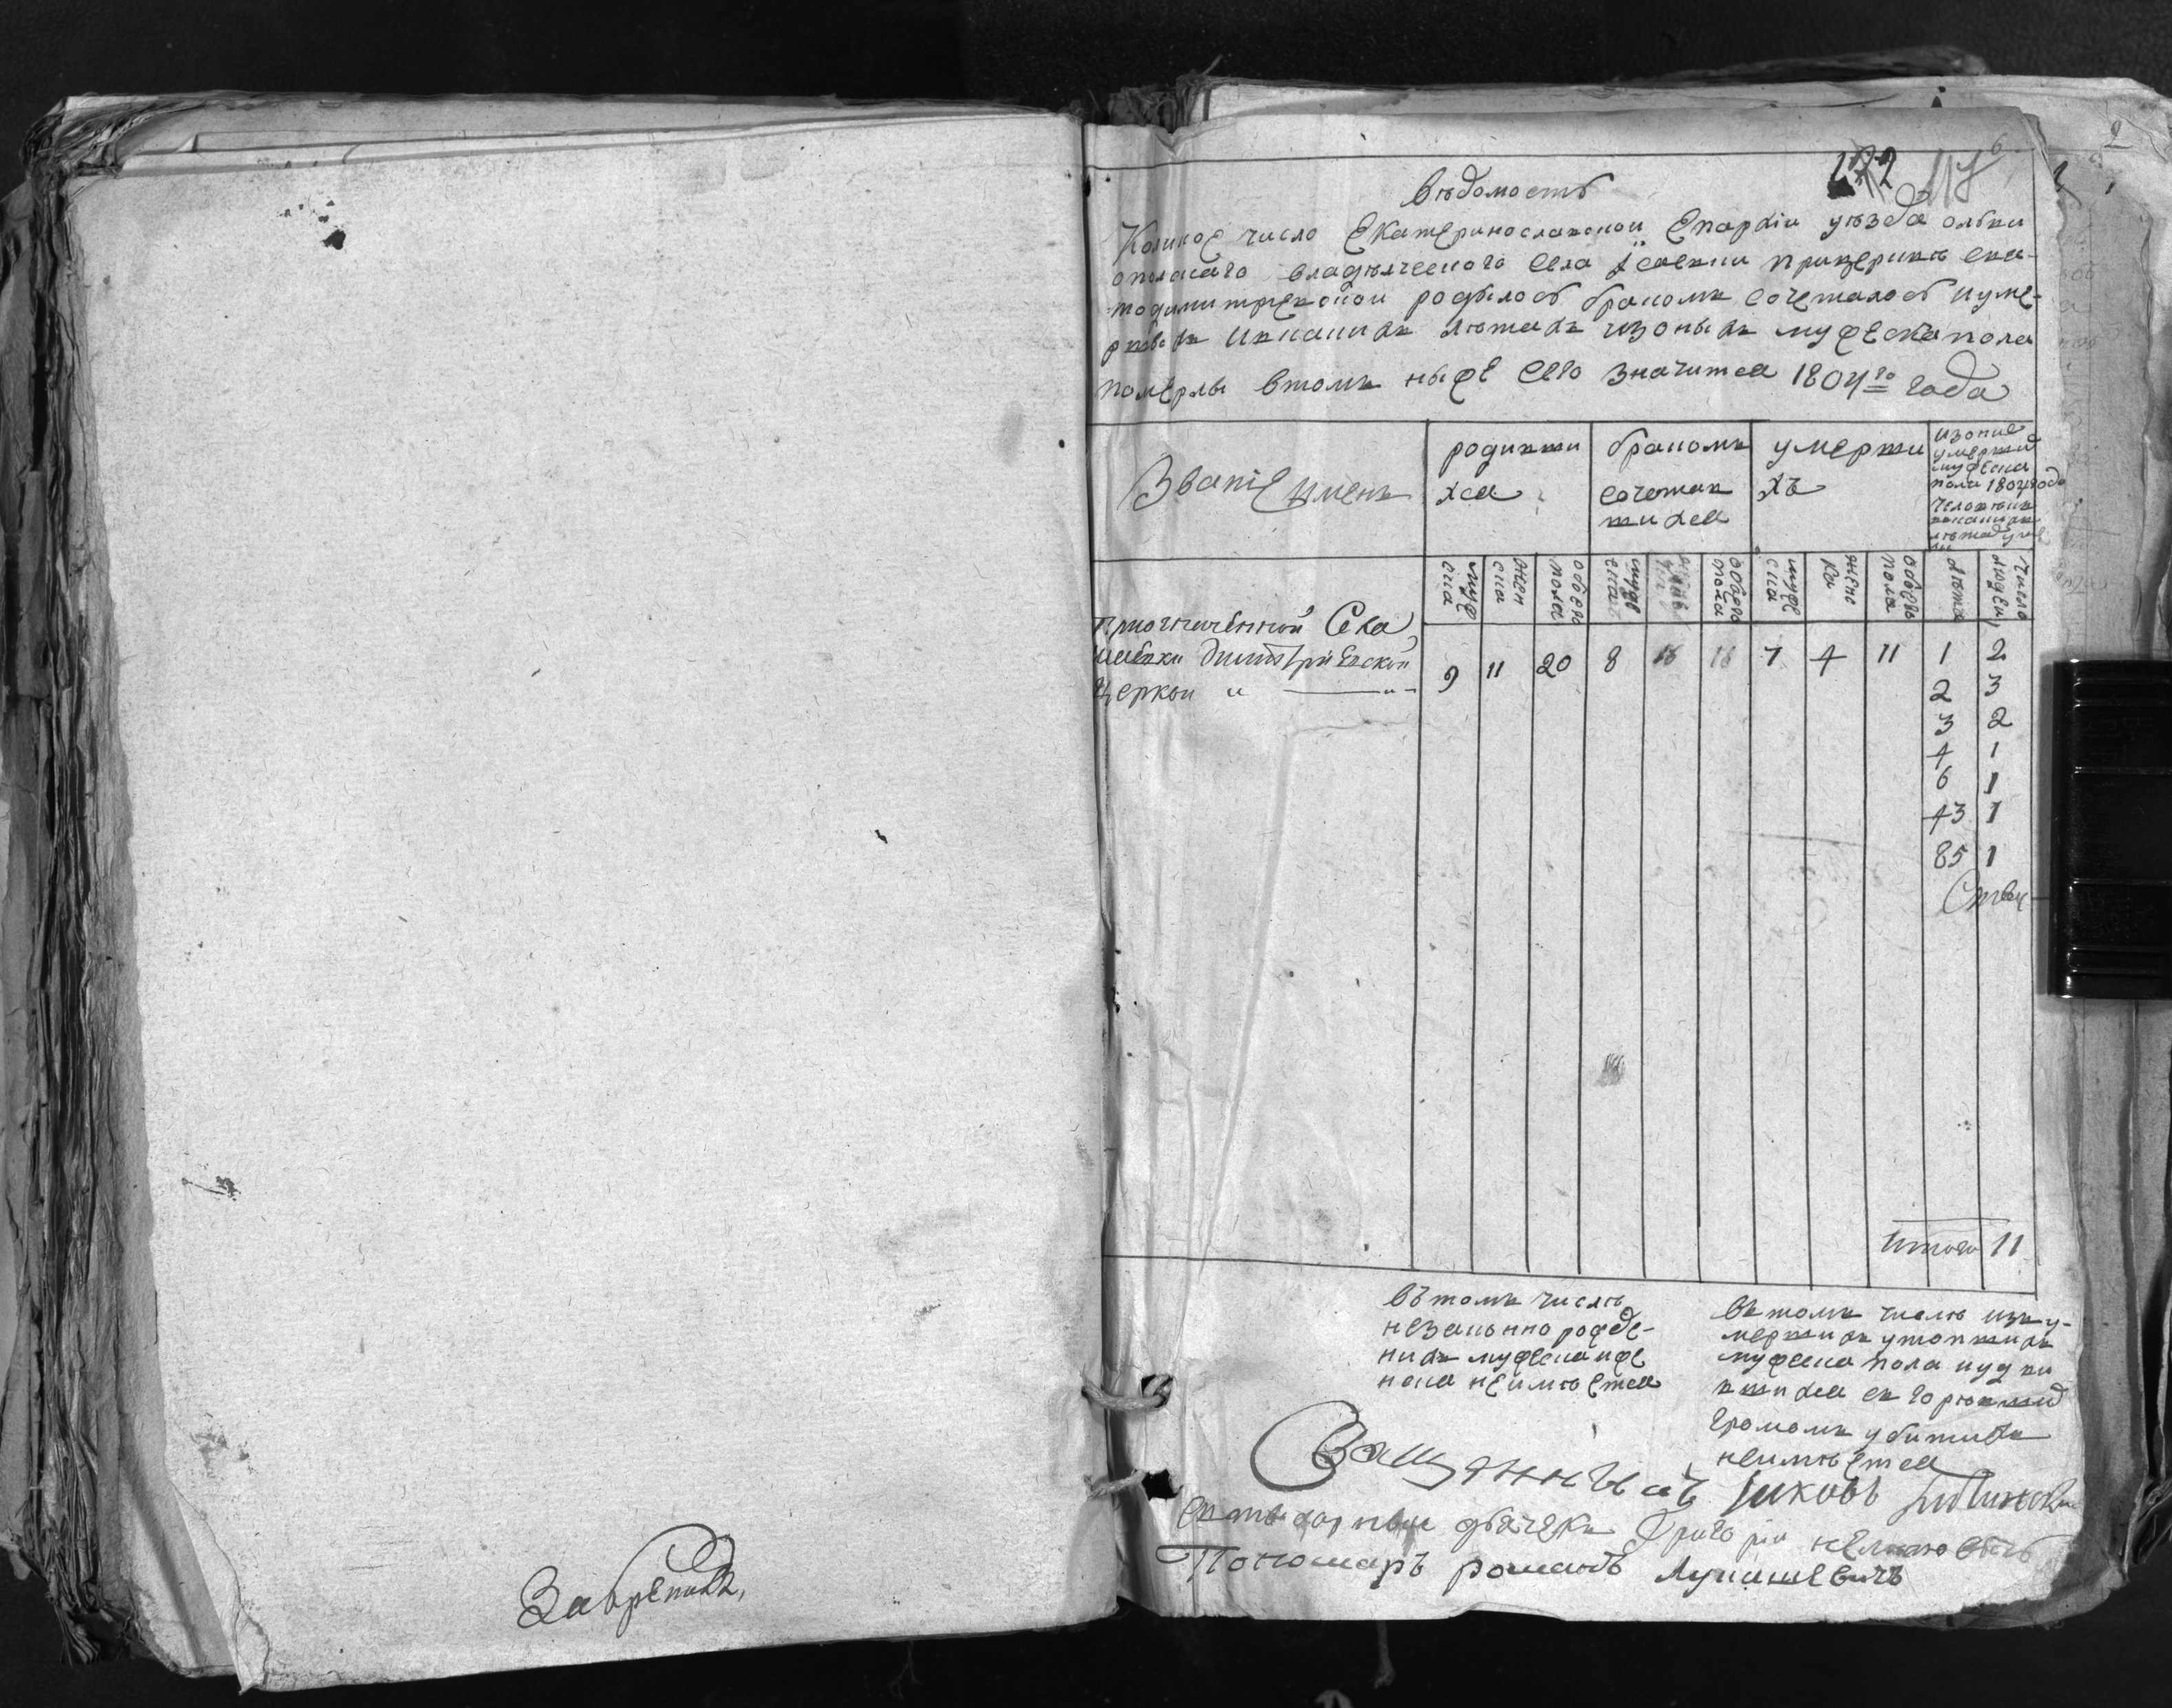 Забрепихъ,
122
117
6
2
вѣдомостъ
Коликое число Екатеринославской Епархіи уѣзда ольви
опольскаго владѣлческого села прицерквѣ свя-
тодимитриевской родилось бракомъ сочеталось иуме-
рвъшихъ вкакихъ лѣтахъ изоныхъ мужеска пола
померлы втомъ ныже сего значится 1804го года
Званіе именъ
родивши
хся
бракомъ
сочетав
шихся
умерши
хъ
изоних
умершихъ
мужеска
пола 1804 года
человѣкъ
вкакихъ
лѣтах
муже
ска
жен
ска
обоего
пола
муже
ска
обоего
пола
муже
ска
жено
ка
обоего
пола
лѣта
число
людей
Села
Димитріевской
Церкви
9 11 20 8 16 16 7 4 11 1 2
2 3
3 2
4 1
6 1
43 1
85 1
Итого 11
въ томъ числѣ
незаконно рожде-
нихъ мужеска иже
нска неимѣется
въ томъ числѣ изъ у-
мершихъ утопшихъ
мужеска пола иуда
вшихся сгорѣвших
громомъ убитихъ
неимѣется
Священникъ Іяковъ
дьячекъ Григорій
Пономаръ романъ Лукашевичъ